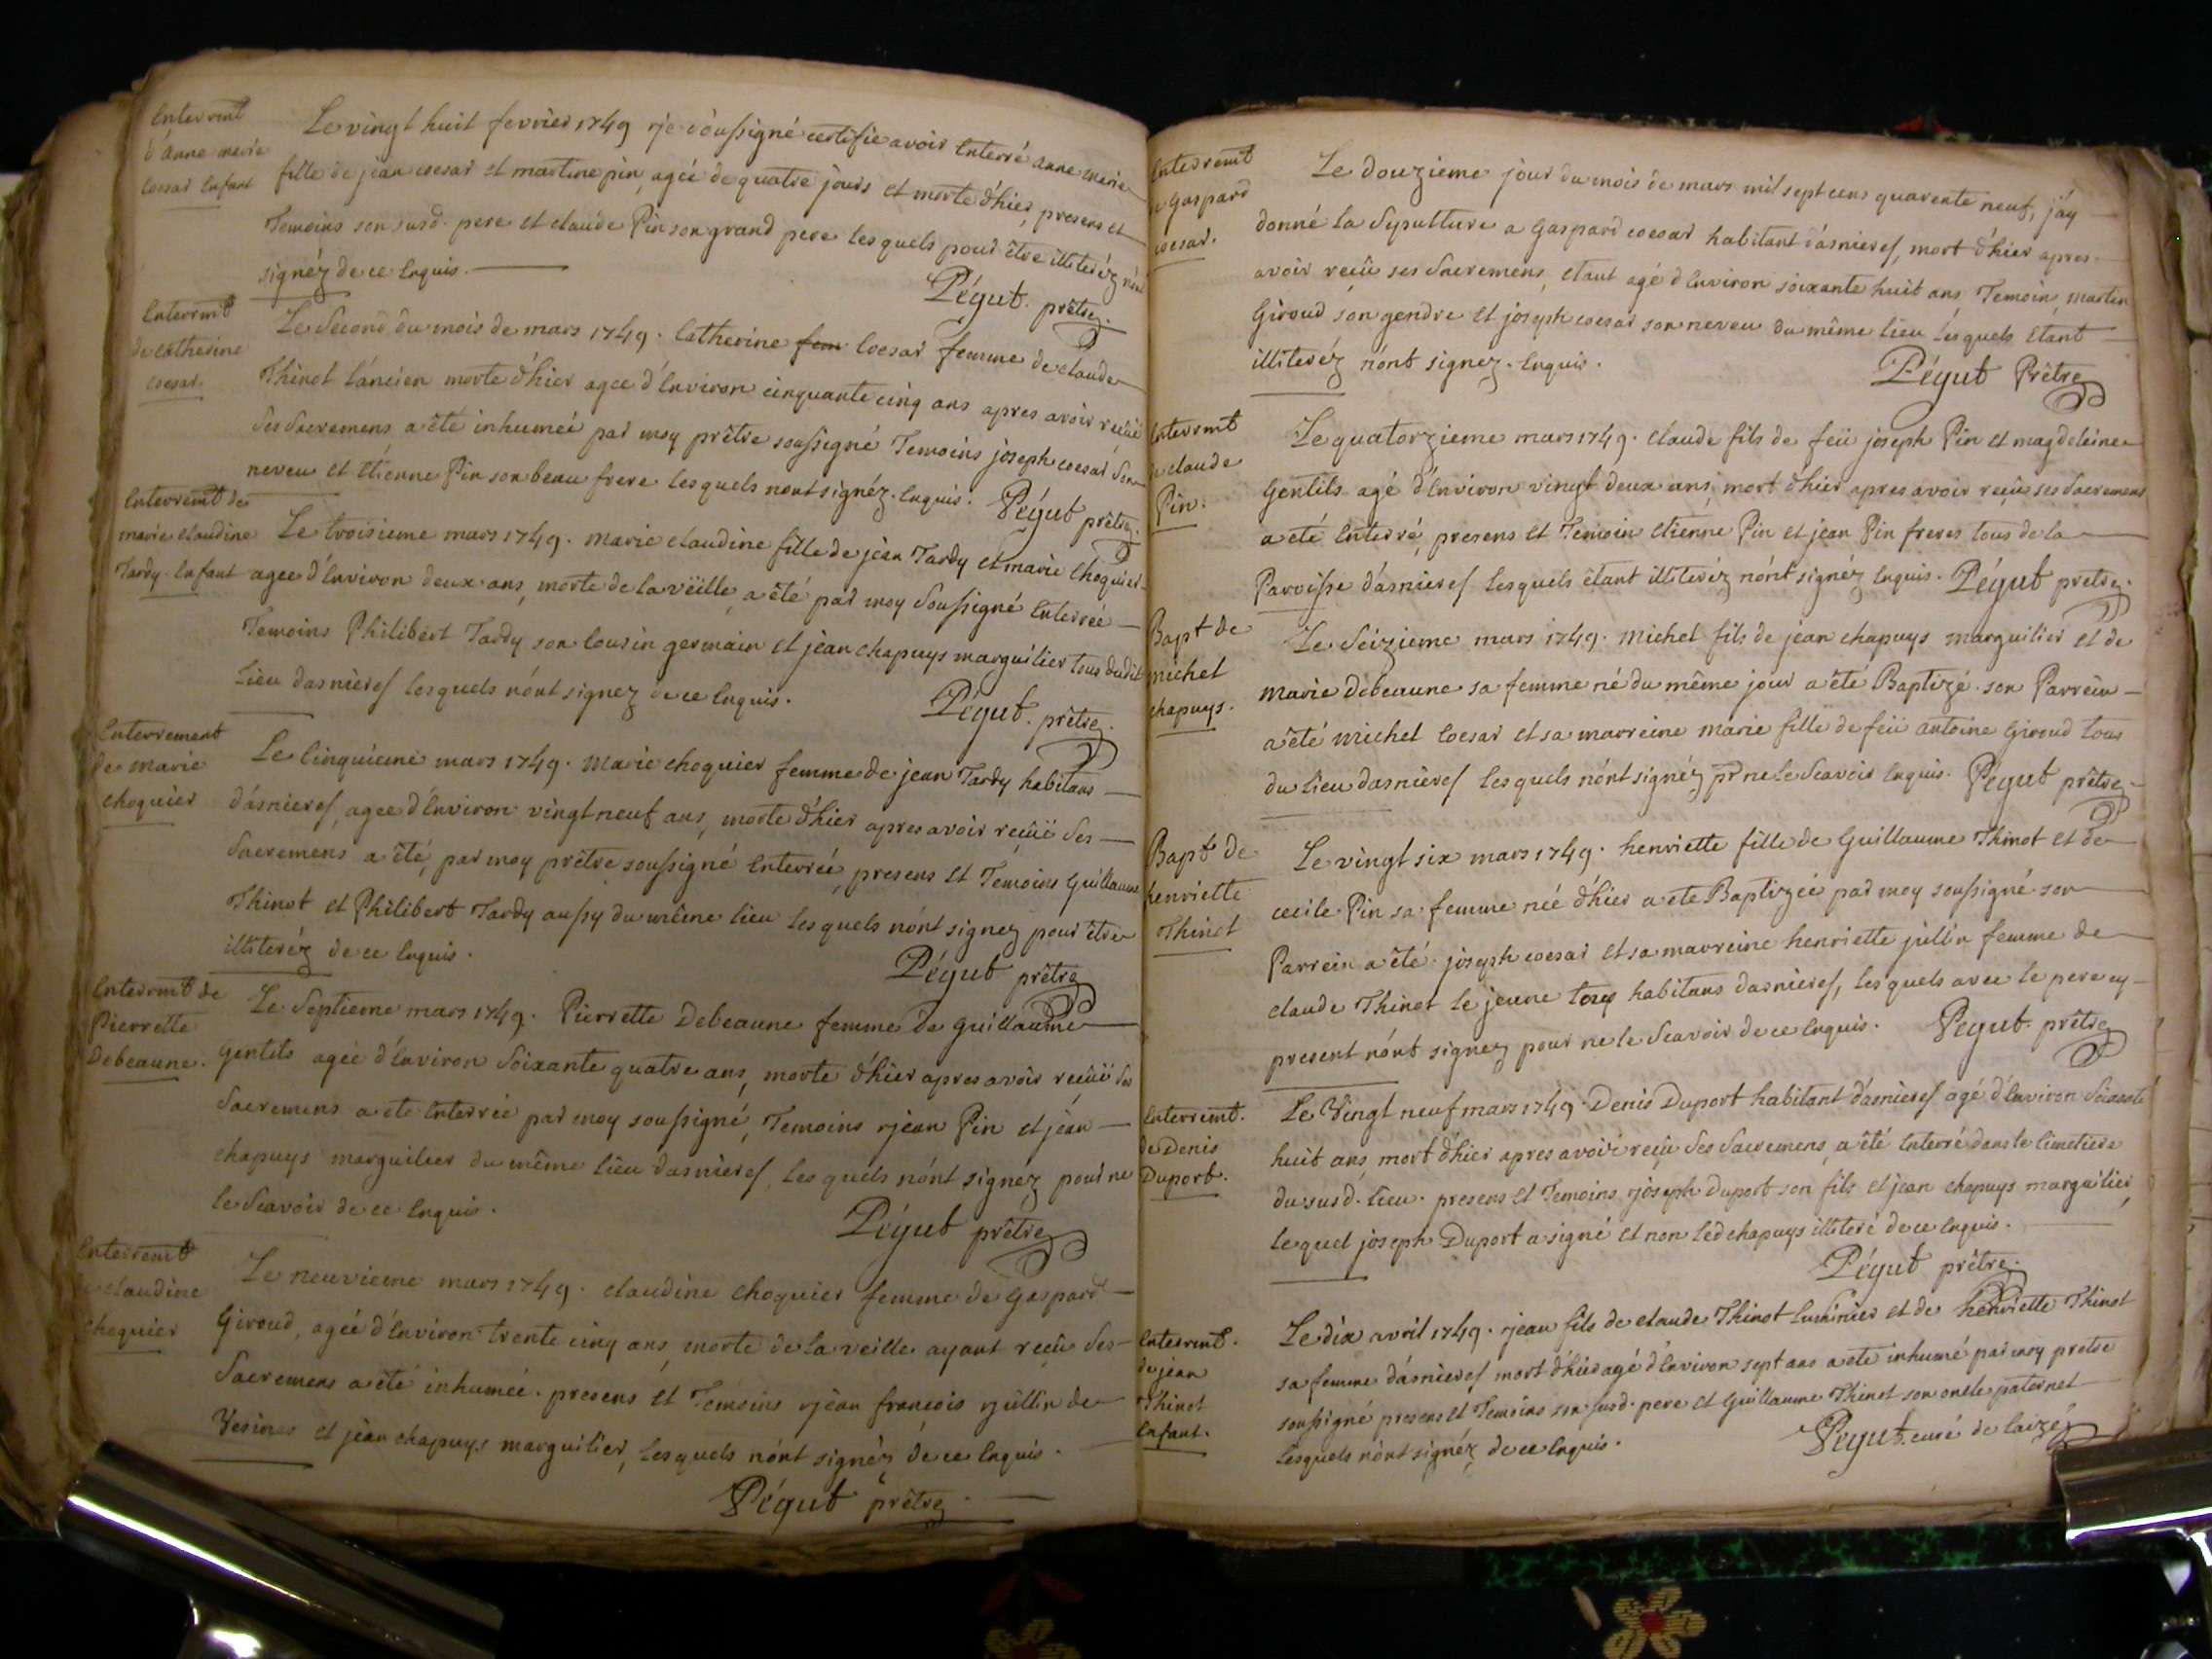 Enterrmt
d'anne marie
Coesar Enfant
Le vingt huit fevrier 1749 je soussigné certifie avoir Enterré anne marie
fille de jean coesar et martine pin, agée de quatre jours et morte d'hier, presens et
Temoins son susd. pere et claude Pin son grand pere lesquels pour être illiteréz n'ont
signéz de ce Enquis.
Pégut. prêtre.
Enterrmt
de catherine
coesar.
Le Second du mois de mars 1749. Catherine fem Coesar femme de claude
Thinot l'áncien morte d'hier agee d'Environ cinquante cinq ans apres avoir recüe
Ses Sacremens a été inhumée par moy prêtre soussigné Temoins joseph coesar Son
neveu et Etienne Pin son beau frere lesquels nont signéz. Enquis. Pégut prêtre.
Enterremt de
marie claudine
Tardy. Enfant
Le troisieme mars 1749. marie claudine fille de jean Tardy et marie choquier
agee d'Environ deux ans, morte de la veille, a été par moy Soussigné Enterrée
Temoins Philibert Tardy son Cousin germain et jean chapuys marguilier tous dudit
Lieu dasnieres lesquels n'ont signez de ce Enquis.
Pégut. prêtre.
Enterrement
de marie
choquier
Le Cinquieme mars 1749. Marie choquier femme de jean Tardy habitans
d'asnieres, agee d'Environ vingt neuf ans, morte d'hier apres avoir recüe Ses
Sacremens a été, par moy prêtre soussigné Enterrée, presens et Temoins Guillaume
Thinot et Philibert Tardy aussy du même lieu lesquels n'ont signez pour être
illiteréz de ce Enquis.
Pégut prêtre
Enterrmt de
Pierrette
Debeaune.
Le Septieme mars 1749. Pierrette Debeaune femme de guillaume
Gentils agée d'Environ Soixante quatre ans, morte d'hier apres avoir recüe Ses
Sacremens a ete Enterrée par moy soussigné, Temoins jean Pin et jean
chapuys marguilier du même lieu dasnieres, lesquels n'ont signéz pour ne
le Scavoir de ce Enquis.
Pégut prêtre
Enterremt
de claudine
choquier
Le neuvieme mars 1749. claudine choquier femme de Gaspard
Giroud, agée d'Environ trente cinq ans, morte de la veille ayant recüe Ses
Sacremens a été inhumée. presens et Temoins jean francois jullin de
Vesines et jean chapuys marguilier, lesquels n'ont signéz de ce Enquis.
Pégut prêtre
Enterremt
de Gaspard
coesar.
Le douzieme jour du mois de mars mil sept cens quarente neuf, j'ay
donné la Sepultture a Gaspard coesar habitant d'asnieres, mort d'hier apres
avoir reçû ses Sacremens, etant agé d'Environ soixante huit ans Temoins martin
Giroud son gendre et joseph coesar son neveu du même lieu lesquels Etant
illiteréz n'ont signez. Enquis.
Pégut Prêtre
Enterrmt
de claude
Pin.
Le quatorzieme mars 1749. claude fils de feü joseph Pin et magdeleine
Gentils agé d'Environ vingt deux ans, mort d'hier apres avoir reçû ses Sacremens
a eté Enterré, presens et Temoin etienne Pin et jean Pin freres tous de la
Paroisse d'asnieres lesquels êtant illiteréz n'ont signéz Enquis. Pégut prêtre.
Bapt de
michel
chapuys.
Le Seizieme mars 1749. Michel fils de jean chapuys marguilier et de
Marie Debeaune sa femme né du même jour a été Baptizé. son Parrein
a été michel Coesar et sa marreine marie fille de feü antoine Giroud tous
du lieu dasnieres lesquels n'ont signéz pr ne le Scavoir Enquis. Pégut prêtre
Bapt de
henriette
Thinot
Le vingt six mars 1749. henriette fille de Guillaume Thinot et de
cecile Pin sa femme née d'hier a ete Baptizée par moy soussigné son
Parrein a été joseph coesar et sa marreine henriette jullin femme de
claude Thinot le jeune tous habitans dasnieres, lesquels avec le pere cy
present n'ont signez pour ne le Scavoir de ce Enquis. Pegut. prêtre
Enterremt.
de Denis
Duport.
Le Vingt neuf mars 1749. Denis Duport habitant d'asnieres agé d'Environ Soixante
huit ans, mort d'hier apres avoir reçû Ses Sacremens, a été Enterré dans le Cimetiere
du susd. lieu. presens et Temoins joseph Duport son fils et jean chapuys marguilier,
lequel joseph Duport a signé et non led chapuys illiteré de ce Enquis.
Pégut prêtre.
Enterrmt.
de jean
Thinot
Enfant.
Le dix avril 1749. jean fils de claude Thinot Luminier et de henriette Thinot
sa femme d'asnieres mort d'hier agé d'Environ sept ans a ete inhumé par moy pretre
soussigné presens et Temoins son susd. pere et Guillaume Thinot son oncle paternel
Lesquels n'ont signéz de ce Enquis.
Pegut. curé de Laizé